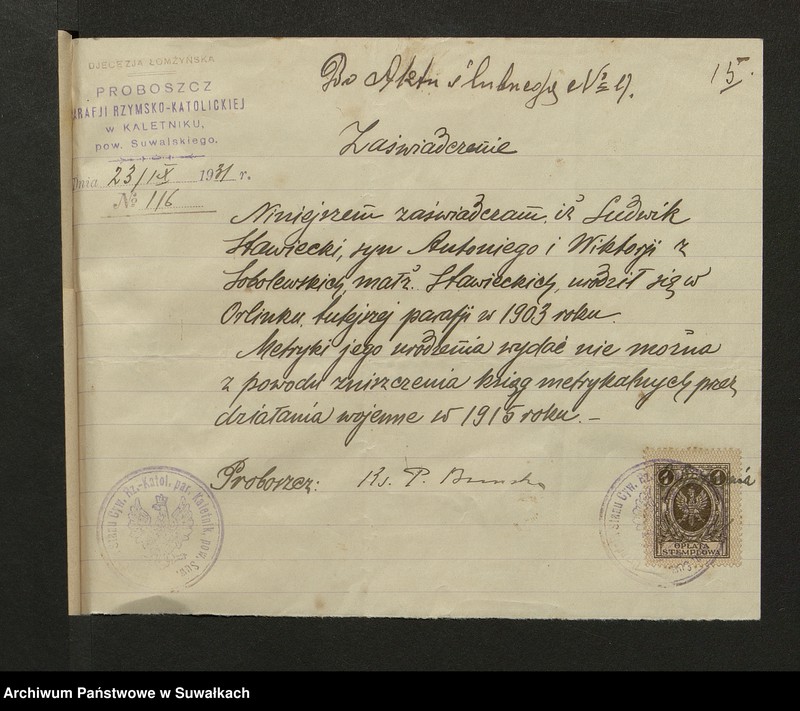 DJECEZJA ŁOMŻYŃSKA
PROBOSZCZ
PARAFJI RZYMSKO-KATOLICKIEJ
w KALETNIKU,
pow. Suwalskiego.
Dnia 23/IX 1931 r.
№ 116
Do Aktu ślubnego № 17.
15.
Zaświadczenie
Niniejszem zaświadczam, iż Ludwik
Sławiecki, syn Antoniego i Wiktorji z
Sobolewskich, małż. Sławieckich, urodził się w
Orlinku, tutejszej parafji w 1903 roku.
Metryki jego urodzenia wydać nie można
z powodu zniszczenia ksiąg metrykalnych przez
działania wojenne w 1915 roku. –
Proboszcz: Ks. P.
Stanu Cyw. Rz.-Katol. par. Kaletnik, pow. Suw.
1 1
OPŁATA
STEMPLOWA
Stanu Cyw. Rz.
Archiwum Państwowe w Suwałkach